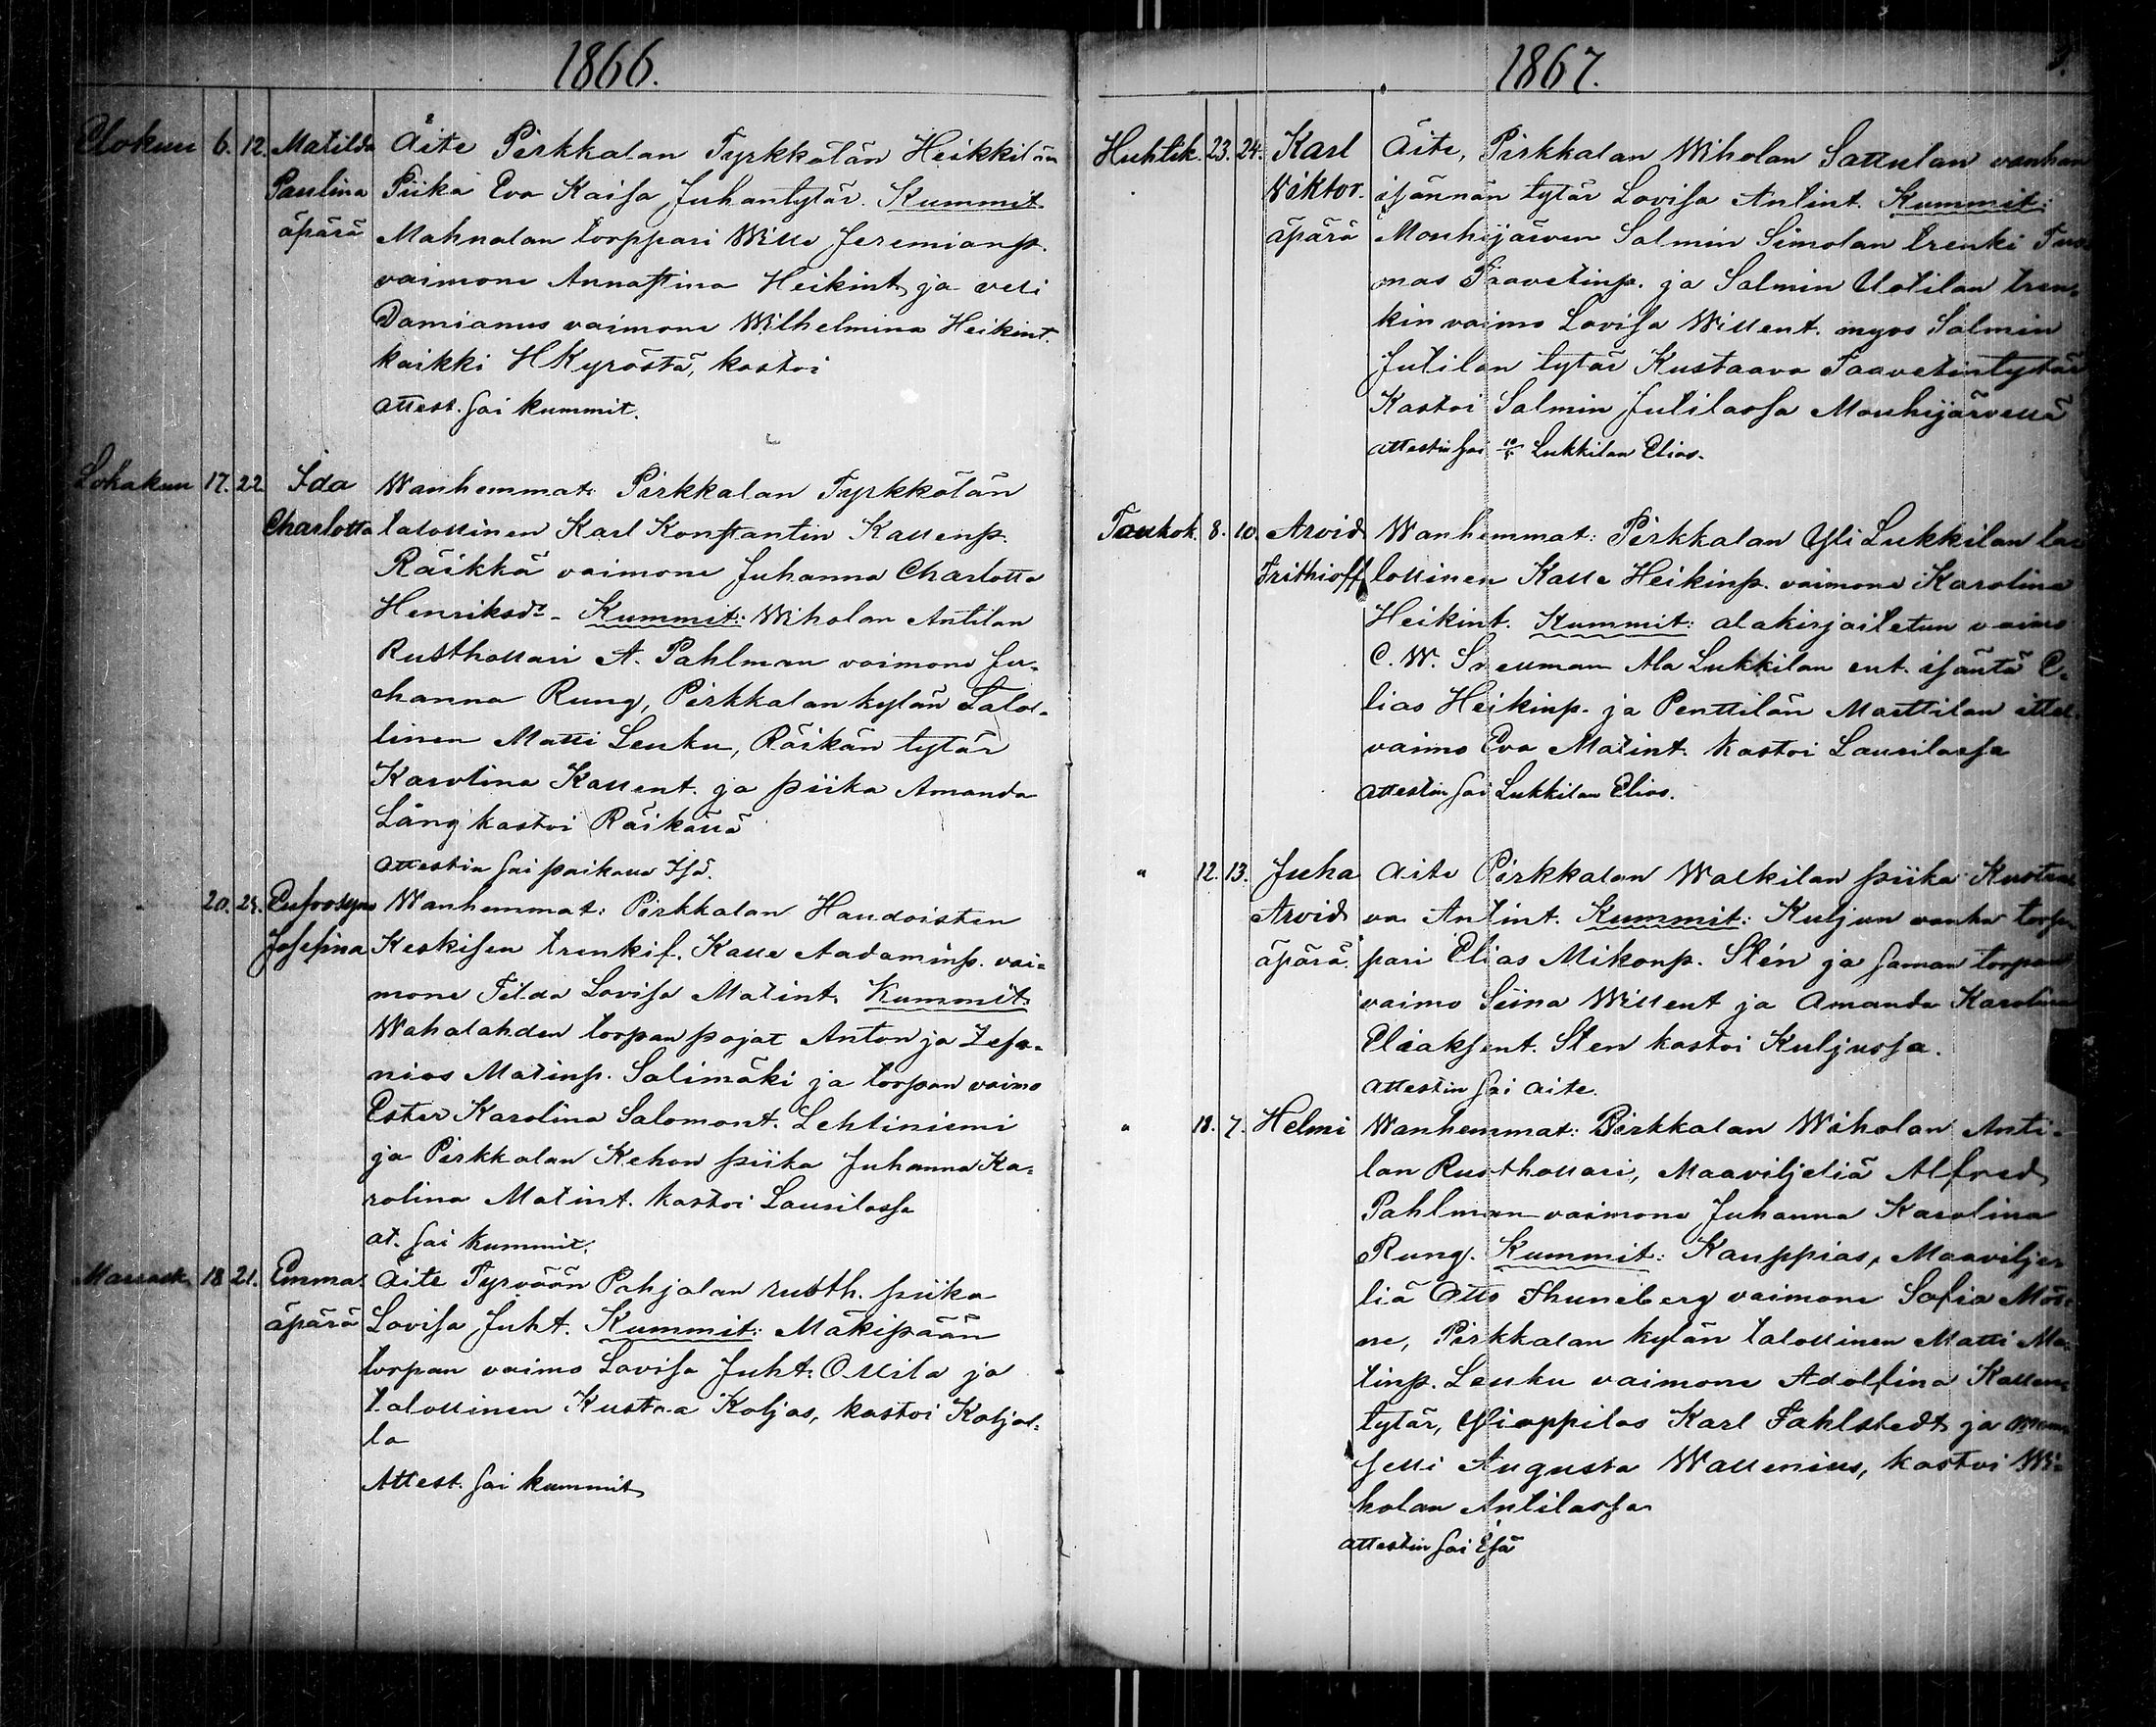 1866.
Elokun 6. 12. Matilda Äite Pirkkalan Tyrkkölän Heikkilän
Paulina Piika Eva Kaisa Juhantytär. Kummit
äpärä Mahnalan torppari Wille Jeremianp.
vaimone Annastina Heikint. ja veli
Damianus vaimone Wilhelmina Heikint.
kaikki HKyröstä, kastoi
attest. sai kummit.
Lokakun 17. 22 Ida Wanhemmat: Pirkkalan Tyrkkölän
Charlotta talollinen Karl Konstantin Kallenp.
Räikkä vaimone Juhanna Charlotta
Henriksdr. Kummit: Wiholan Antilan
Rusthollari A. Pahlman vaimone Ju-
channa Rung, Pirkkalan kylän Talol-
linen Matti Leuku, Räikän tytär
Karolina Kallent. ja piika Amanda
Lång kastoi Räikällä
attestin sai paikalla Isä.
20. 24. Eufrosyne Wanhemmat: Pirkkalan Haudoisten
Josefina Keskisen trenkif. Kalle Aadaminp. vai-
mone Tilda Lovisa Matint. Kummit
Wahalahden torpan pojat Anton ja Zefa-
nias Matinp. Salimäki ja torpan vaimo
Ester Karolina Salomont. Lehtiniemi
ja Pirkkalan Kehon piika Juhanna Ka-
rolina Matint. kastoi Lausilassa
at. sai kummit.
Marrask. 18 21. Emma Äite Tyrvään Pohjalan rusth. piika
äpärä Lovisa Juht. Kummit: Mäkipään
torpan vaimo Lovisa Juht. Ollila ja
talollinen Kustaa Koljas, kastoi Koljol-
la
Attest. sai kummit
1867.
Huhtik. 23. 24. Karl Äite, Pirkkalan Wiholan Sattulan vanhan
Wiktor. isännän tytär Lovisa Antint. Kummit:
äpärä Mouhijärven Salmin Simolan trenki Tuo
mas Taavetinp. ja Salmin Uotilan tren-
kin vaimo Lovisa Willent. myös Salmin
Jutilan tytär Kustaava Taavetintytär
Kastoi Salmin Jutilassa Mouhijärvellä
attestin sai Lukkilan Elias.
Toukok. 8. 10. Arvid Wanhemmat: Pirkkalan Yli Lukkilan ta
Frithioff lollinen Kalle Heikinp. vaimone Karolina
Heikint. Kummit: alakirjoitetun vaimo
C. W. Snellman Ala Lukkilan ent. isäntä E-
lias Heikinp. ja Penttilän Marttilan ittel.
vaimo Eva Matint. kastoi Lausilassa
attestin sai Lukkilan Elias.
" 12. 13. Juha Äite Pirkkalan Walkilan piika Kustaa
Arvid va Antint. Kummit: Kuljun vanha torp
äpärä. pari Elias Mikonp. Stén ja saman torpan
vaimo Siina Willent ja Amanda Karolina
Eliaksent. Sten kastoi Kuljussa.
attestin sai aite.
" 18. 7. Helmi Wanhemmat: Pirkkalan Wiholan Anti-
lan Rusthollari, Maaviljeliä Alfred
Pahlman vaimone Juhanna Karolina
Rung. Kummit: Kauppias, Maavilje-
liä Otto Thuneberg vaimone Sofia Mör-
ne, Pirkkalan kylän talollinen Matti Ma-
tinp. Leuku vaimone Adolfina Kallen-
tytär, Ylioppilas Karl Fahlstedt ja mam
selli Augusta Wallenius, kastoi Wi-
holan Antilassa
attestin sai Isä